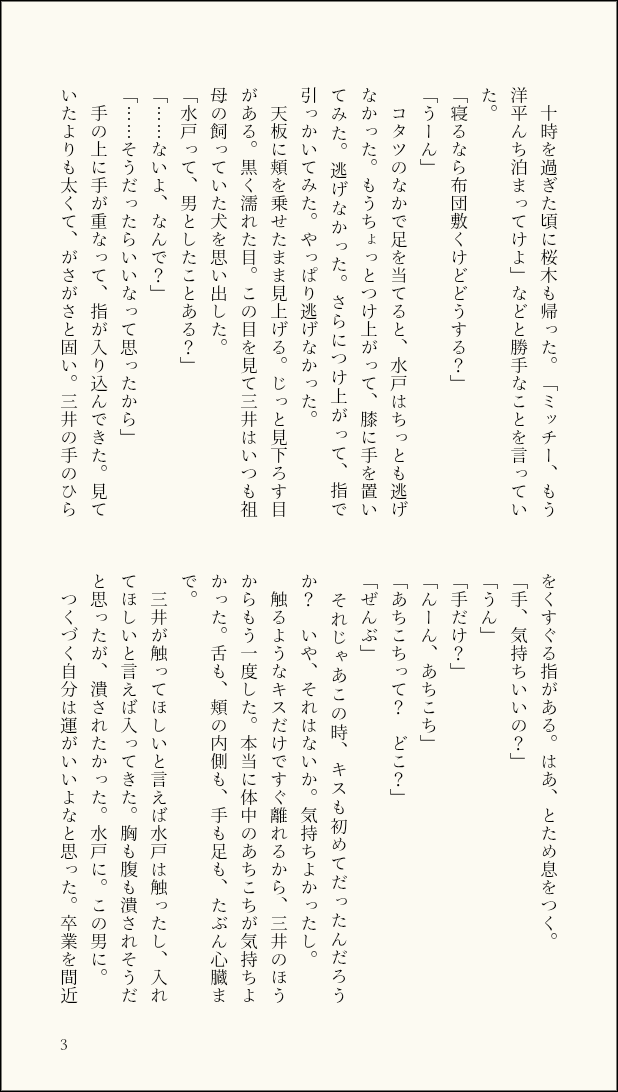 十時を過ぎた頃に桜木も帰った。「ミッチー、もう
洋平んち泊まってけよ」などと勝手なことを言ってい
た。
「寝るなら布団敷くけどどうする？」
「うーん」
コタツのなかで足を当てると、水戸はちっとも逃げ
なかった。もうちょっとつけ上がって、膝に手を置い
てみた。逃げなかった。さらにつけ上がって、指で
引っかいてみた。やっぱり逃げなかった。
天板に頬を乗せたまま見上げる。じっと見下ろす目
がある。黒く濡れた目。この目を見て三井はいつも祖
母の飼っていた犬を思い出した。
「水戸って、男としたことある？」
「……ないよ、なんで？」
「……そうだったらいいなって思ったから」
手の上に手が重なって、指が入り込んできた。見て
いたよりも太くて、がさがさと固い。三井の手のひら
をくすぐる指がある。はあ、とため息をつく。
「手、気持ちいいの？」
「うん」
「手だけ？」
「んーん、あちこち」
「あちこちって？　どこ？」
「ぜんぶ」
それじゃあこの時、キスも初めてだったんだろう
か？　いや、それはないか。気持ちよかったし。
触るようなキスだけですぐ離れるから、三井のほう
からもう一度した。本当に体中のあちこちが気持ちよ
かった。舌も、頬の内側も、手も足も、たぶん心臓ま
で。
三井が触ってほしいと言えば水戸は触ったし、入れ
てほしいと言えば入ってきた。胸も腹も潰されそうだ
と思ったが、潰されたかった。水戸に。この男に。
つくづく自分は運がいいよなと思った。卒業を間近
3